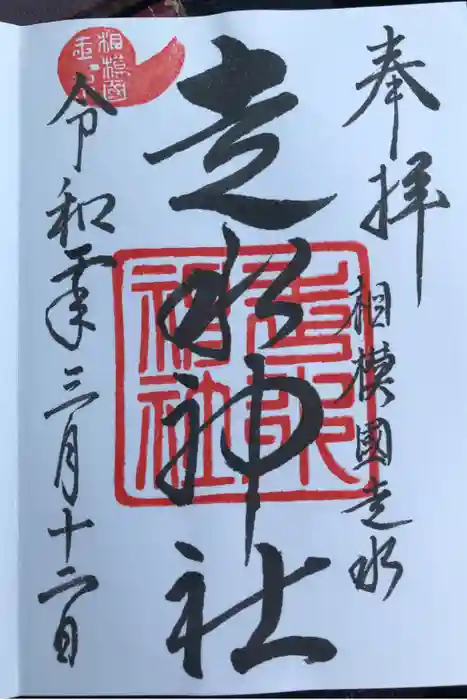 奉拝
相模國走水
走水神社
令和二年三月十二日
相模國
走水神社